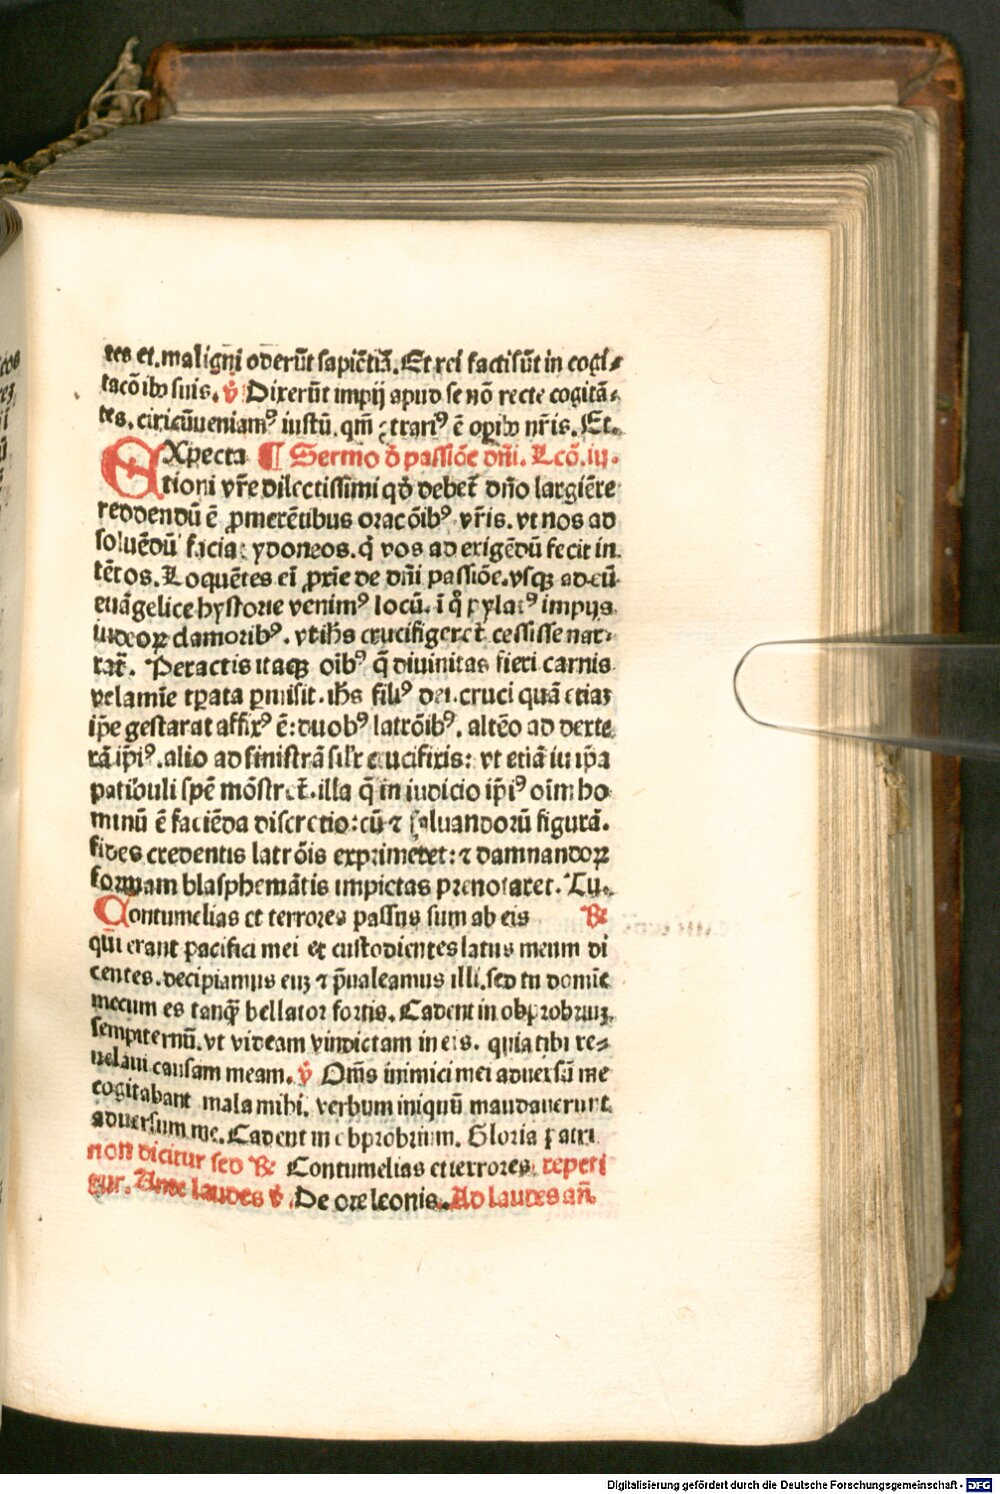 tes et.maligni oderūt sapiētiā.Et rei facti sūt in cogi-
tacōibꝰ suis. ℣ Dixerūt impij apud se nō recte cogitā-
tes. circūueniamꝰ iustū. qm̄ ꝯtrariꝰ ē oꝑibꝰ nr̄is. Et.
EXpecta ¶ Sermo d̄ passiōe dn̄i. Lcō. iij.
tioni vr̄e dilectissimi qd̄ debet̄ dn̄o largiēte
reddendū ē ꝓmerētibus oracōibꝰ vr̄is. vt nos ad
soluēdū faciat ydoneos. q̄ vos ad exigēdū fecit in
tētos. Loquētes em̄ ꝓxīe de dn̄i passiōe. vsqꝫ ad eū
euāgelice hystorie venimꝰ locū. ī q̊ pylatꝰ impijs
iudeoꝝ clamoribꝰ. vt ih̄s crucifigeret̄ cessisse nar-
rat̄. Peractis itaqꝫ oībꝰ q̄ diuinitas fieri carnis
velamīe tꝑata ꝑmisit. ih̄s filiꝰ dei. cruci quā etiaꝫ
ip̄e gestarat affixꝰ ē: duobꝰ latrōibꝰ. altēo ad dexte
rā ip̄iꝰ. alio ad sinistrā sil̄r crucifixis: vt etiā in ip̄a
patibuli spē mōstret̄. illa q̄ in iudicio ip̄iꝰ oīm ho
minū ē faciēda discretio: cū ⁊ saluandorū figurā.
fides credentis latrōis exprimeret: ⁊ damnandoꝝ
formam blasphemātis impietas prenotaret. Tu.
Contumelias et terrores passus sum ab eis ℟
qui erant pacifici mei et custodientes latus meum di
centes. decipiamus euꝫ ⁊ p̄ualeamus illi. sed tu domīe
mecum es tanqꝫ bellator fortis. Cadent in obprobriuꝫ
sempiternū. vt videam vindictam in eis. quia tibi re-
uelaui causam meam. ℣ Om̄s inimici mei aduersū me
cogitabant mala mihi. verbum iniquū mandauerunt
aduersum me. Cadent in obprobrium. Gloria patri
non dicitur sed ℟ Contumelias et terrores. repeti
tur. Ante laudes ℣. De ore leonis. Ad laudes an̄.
Digitalisierung gefördert durch die Deutsche Forschungsgemeinschaft - DFG